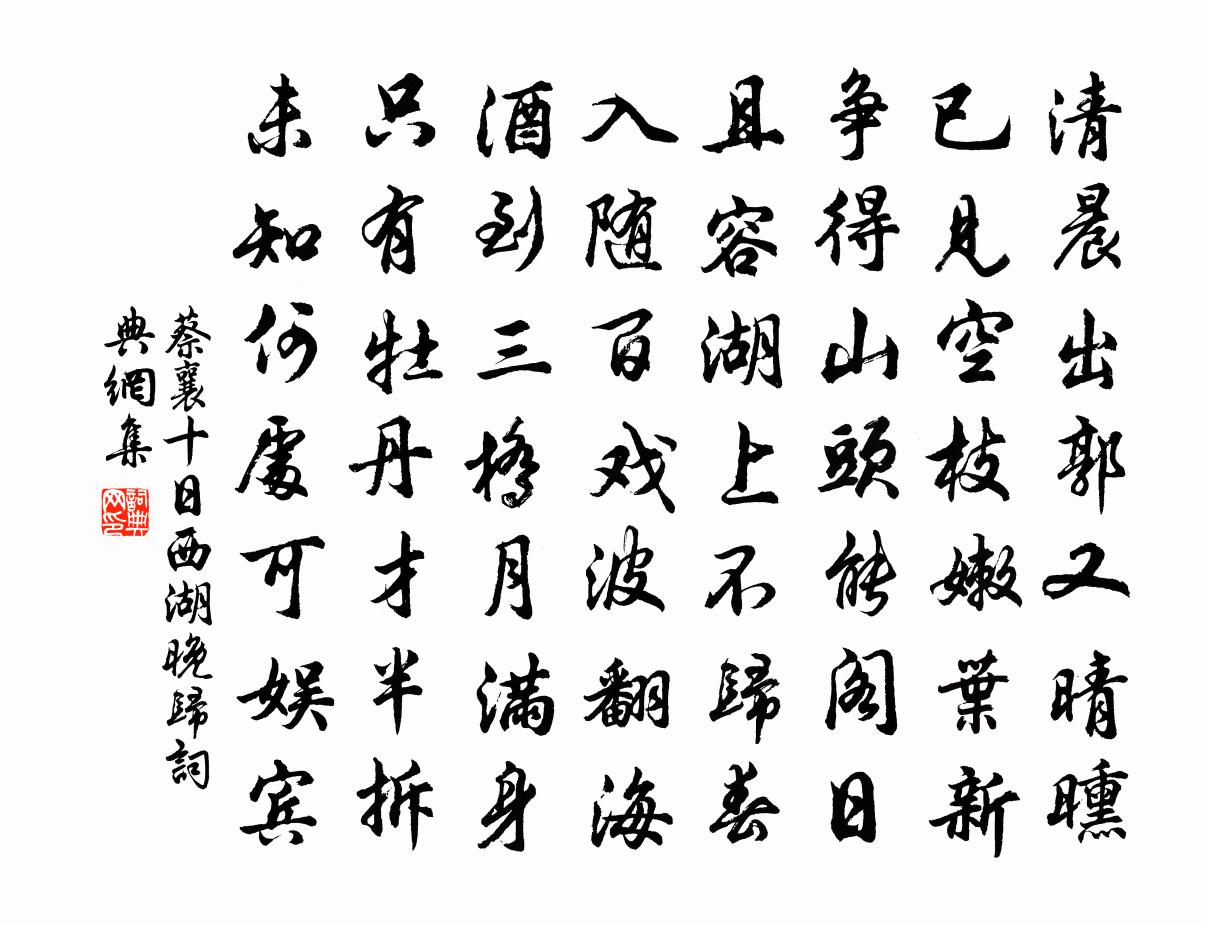 清晨出郭又晴曛
已見空枝嫩葉新
争得山頭能阁日
且容湖上不歸春
入随百戏波翻海
酒到三橋月满身
只有牡丹才半拆
未知何處可娱宾
蔡襄十日西湖晚歸詞
典網集
詞典
网印